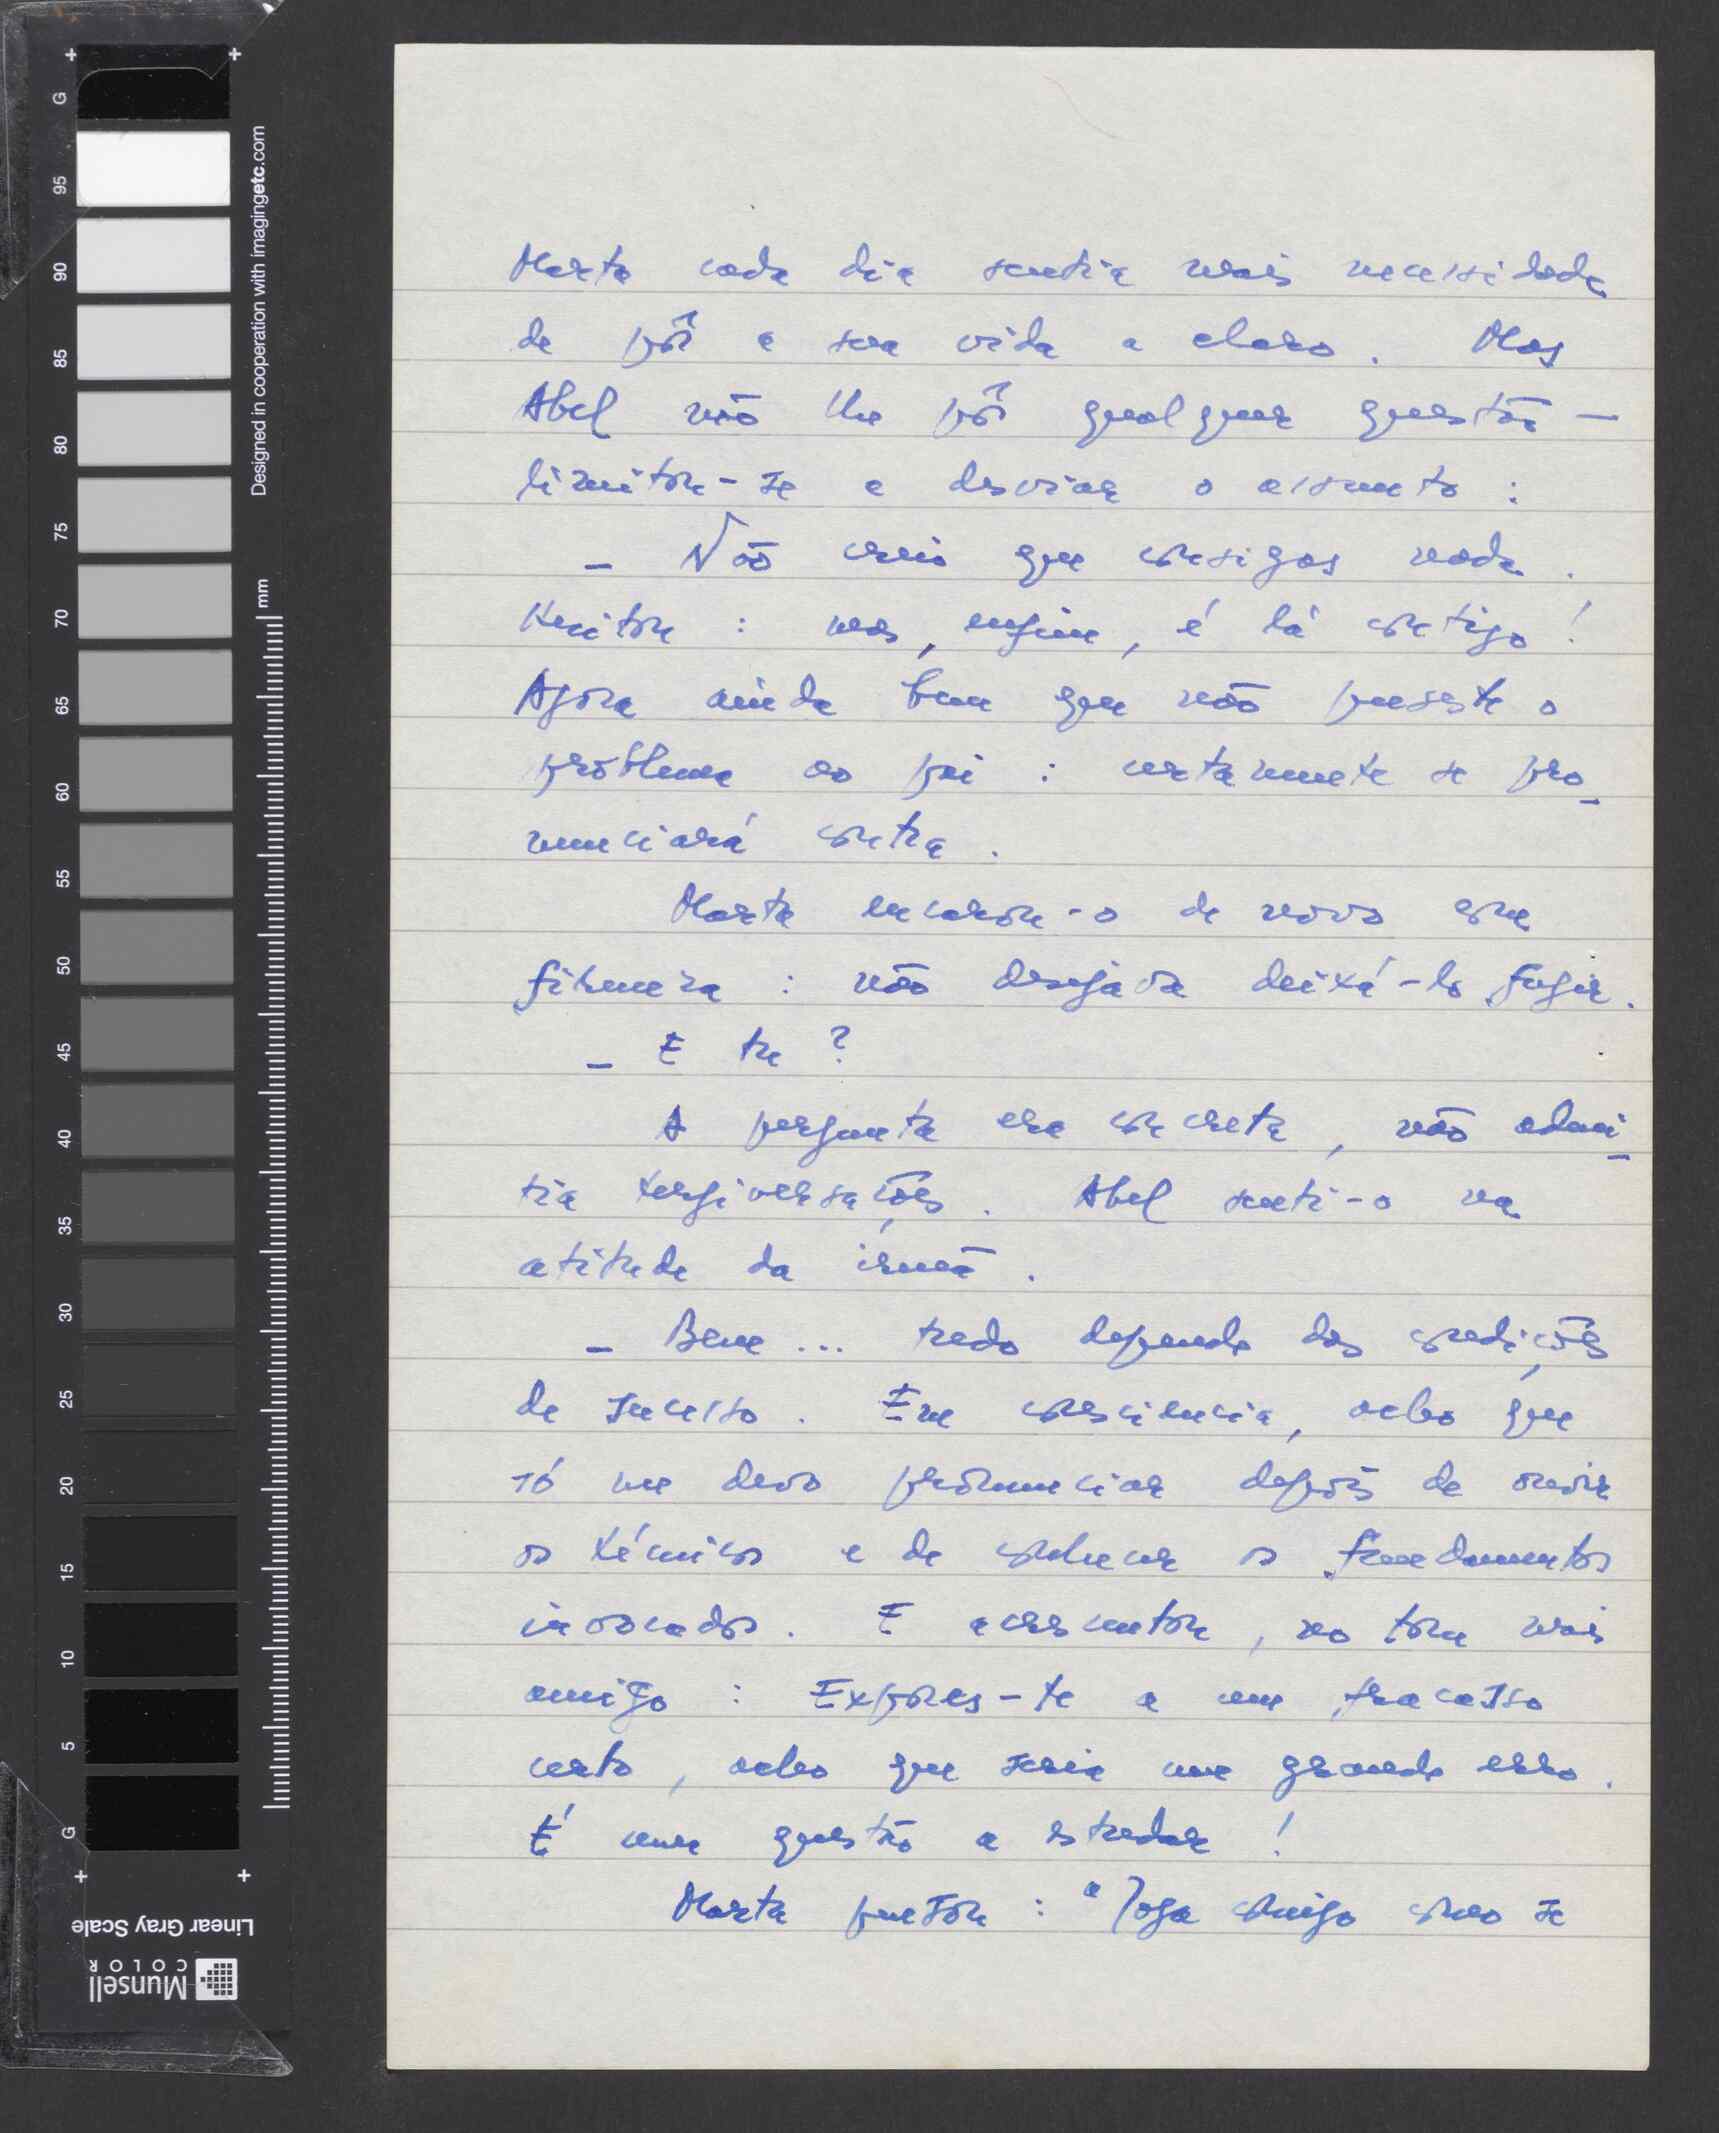 Marta cada dia sentia mais necessidade
de pôr a sua vida a claro. Mas
Abel não lhe pôs qualquer questão —
limitou-se a desviar o assunto :
— Não creio que consigas nada.
Tentou : mas, enfim, é lá contigo !
Agora ainda bem que não puseste o
problema ao pai : certamente se pro-
nunciará contra.
Marta encarou-o de novo com
firmeza : não desejava deixá-lo fugir.
— E tu ?
A pergunta era concreta, não admi-
tia tergiversações. Abel senti-o na
atitude da irmã.
— Bem ... tudo depende das condições
de sucesso. Em consciencia, acho que
só me devo pronunciar depois de ouvir
os técnicos e de conhecer os fundamentos
invocados. E acrescentou, no tom mais
amigo : Expores-te a um fracasso
certo, acho que seria um grande erro.
É uma questão a estudar !
Marta pensou : "Joga comigo como se
G 95 90 85 80 75 70 65 60 55 50 45 40 35 30 25 20 15 10 5 G
Designed in cooperation with imagingetc.com
mm
Linear Gray Scale
Munsell
COLOR